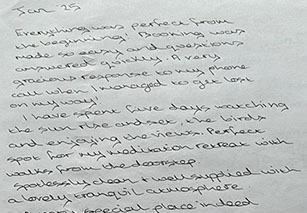 Jan. 25
Everything was perfect from
the beginning! Booking was
made so easy and questions
answered quickly. A very
gracious response to my phone
call when I managed to get lost
on my way!
I have spent five days watching
the sun rise and set, the birds
and enjoying the views. Perfect
spot for my meditation retreat with
walks from the doorstep.
Spotlessly clean + well supplied with
a lovely tranquil atmosphere.
A very special place indeed